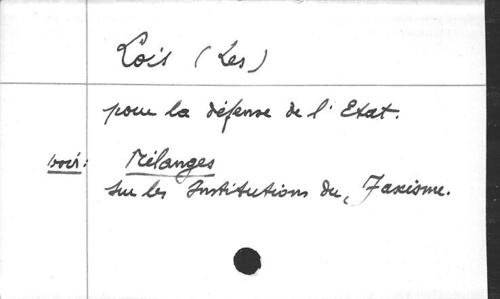 Lois (Les)
pour la défense de l'Etat.
voir: Mélanges
sur les Institutions du Faxisme.